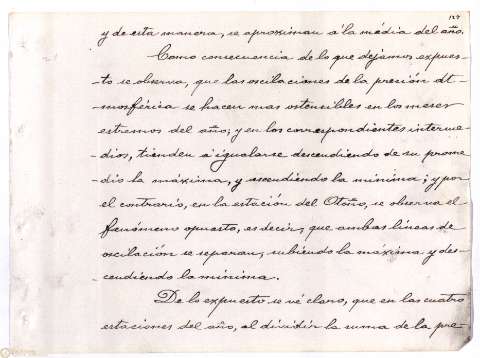 127
y de esta manera, se aproximan á la média del año.
Como consecuencia de lo que dejamos expues-
-to se observa, que las oscilaciones de la presión at-
-mosférica se hacen mas ostensibles en los meses
estremos del año; y en los correspondientes interme-
-dios, tienden á igualarse descendiendo de su prome-
-dio la máxima, y ascendiendo la minima; y por
el contrario, en la estación del Otoño, se observa el
fenómeno opuesto, es decir, que ambas líneas de
oscilación se separan, subiendo la máxima y des-
-cendiendo la minima.
De lo expuesto se vé claro, que en las cuatro
estaciones del año, al dividir la suma de la pre-